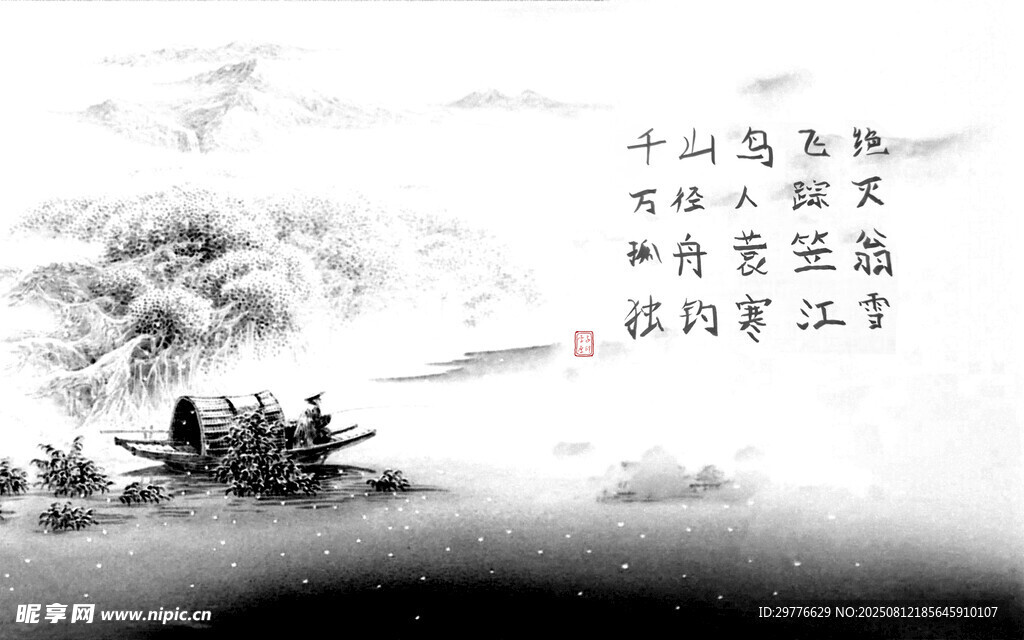 千山鸟飞绝
万径人踪灭
孤舟蓑笠翁
独钓寒江雪
昵享网 www.nipic.cn
ID:29776629 NO:20250812185645910107